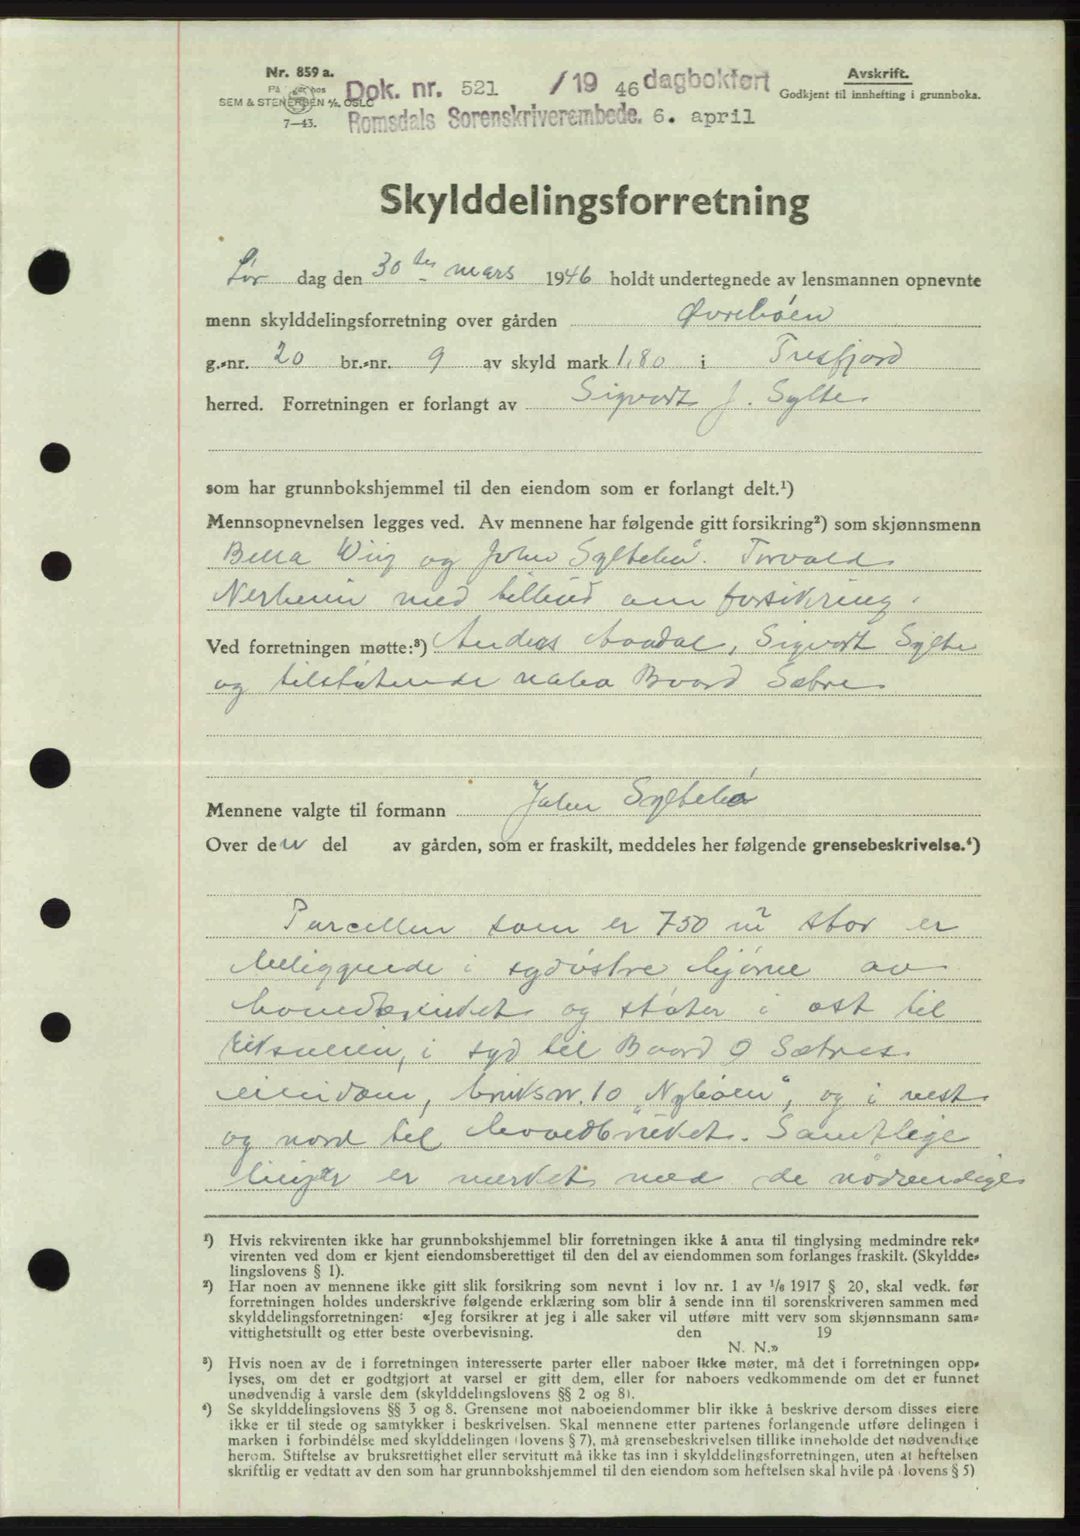 Nr. 859 a.
På lager hos
SEM & STENERSEN A/S, OSLO
7—43.
Dok. nr. 521 /19 46 dagbokført
Romsdals Sorenskriverembede. 6. april
Avskrift.
Godkjent til innhefting i grunnboka.
Skylddelingsforretning
Lør dag den 30 des mars 1946 holdt undertegnede av lensmannen opnevnte
menn skylddelingsforretning over gården Øvrebøen
g.-nr. 20 br.-nr. 9 av skyld mark 1,80 i Tresfjord
herred. Forretningen er forlangt av Sigvart J. Sylte
som har grunnbokshjemmel til den eiendom som er forlangt delt.¹)
Mennsopnevnelsen legges ved. Av mennene har følgende gitt forsikring²) som skjønnsmenn
Wiig og John Syltebø. Torvald
Nerheim med tilbud om forsikring.
Ved forretningen møtte:³) Anders Aandal, Sigvart Sylte
og tilstøtende nabo Baard Sæbre
Mennene valgte til formann John Syltebø
Over den del av gården, som er fraskilt, meddeles her følgende grensebeskrivelse.⁴)
Parcellen som er 750 m² stor er
beliggende i sydøstre hjørne av
hovedbruket og støter i øst til
riksveien, i syd til Baard O Sætres
eiendom, bruksnr. 10 „Nybøen", og i vest
og nord til hovedbruket. Samtlige
linjer er merket med de nødvendige
¹) Hvis rekvirenten ikke har grunnbokshjemmel blir forretningen ikke å anta til tinglysing medmindre rek-
virenten ved dom er kjent eiendomsberettiget til den del av eiendommen som forlanges fraskilt. (Skyldde-
lingslovens § 1).
²) Har noen av mennene ikke gitt slik forsikring som nevnt i lov nr. 1 av 1/6 1917 § 20, skal vedk. før
forretningen holdes underskrive følgende erklæring som blir å sende inn til sorenskriveren sammen med
skylddelingsforretningen: «Jeg forsikrer at jeg i alle saker vil utføre mitt verv som skjønnsmann sam-
vittighetstullt og etter beste overbevisning. den 19
N. N.»
³) Hvis noen av de i forretningen interesserte parter eller naboer ikke møter, må det i forretningen opp-
lyses, om det er godtgjort at varsel er gitt dem, eller for naboers vedkommende om det er funnet
unødvendig å varsle dem (skylddelingslovens §§ 2 og 8).
⁴) Se skylddelingslovens §§ 3 og 8. Grensene mot naboeiendommer blir ikke å beskrive dersom disses eiere
ikke er til stede og samtykker i beskrivelsen. Skal mennene etter partenes forlangende utføre delingen i
marken i forbindelse med skylddelingen (lovens § 7), må grensebeskrivelsen tillike inneholde det nødvendige
herom. Stiftelse av bruksrettighet eller servitutt må ikke tas inn i skylddelingsforretningen, uten at heftelsen
skriftlig er vedtatt av den som har grunnbokshjemmel til den eiendom som heftelsen skal hvile på (lovens § 5)